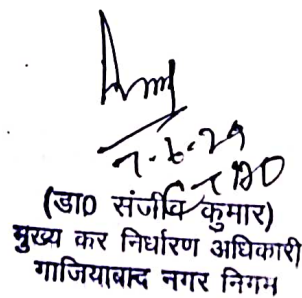 (डा0 संजीव कुमार)
मुख्य कर निर्धारण अधिकारी
गाजियाबाद नगर निगम